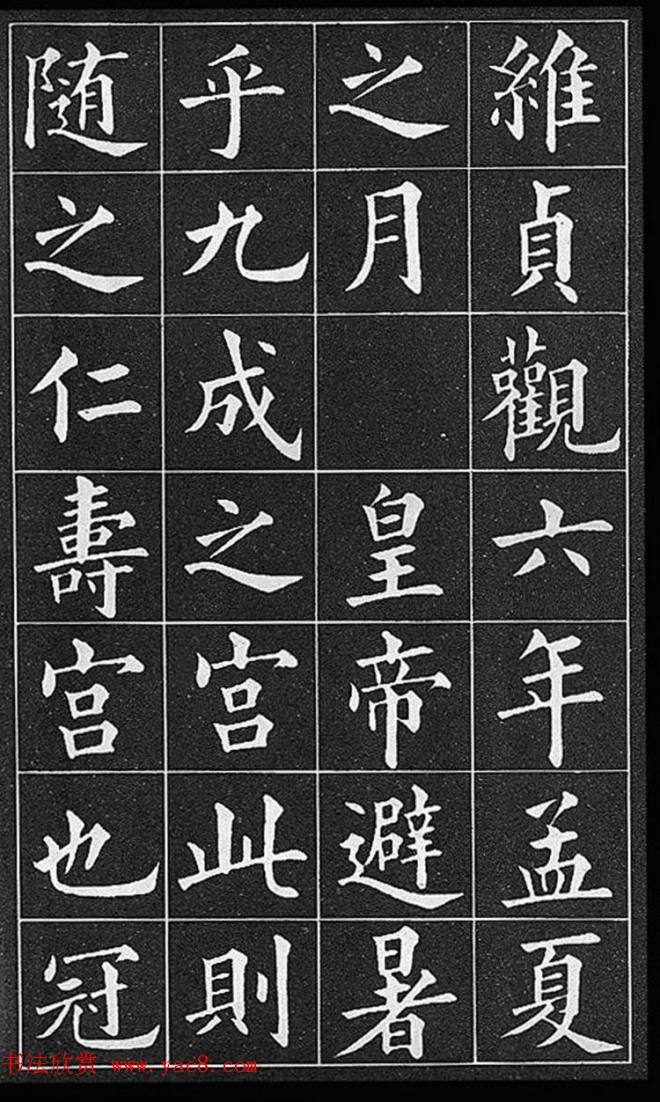 維貞觀六年孟夏
之月皇帝避暑
乎九成之宮此則
随之仁壽宮也冠
书法欣赏 www.yac8.com